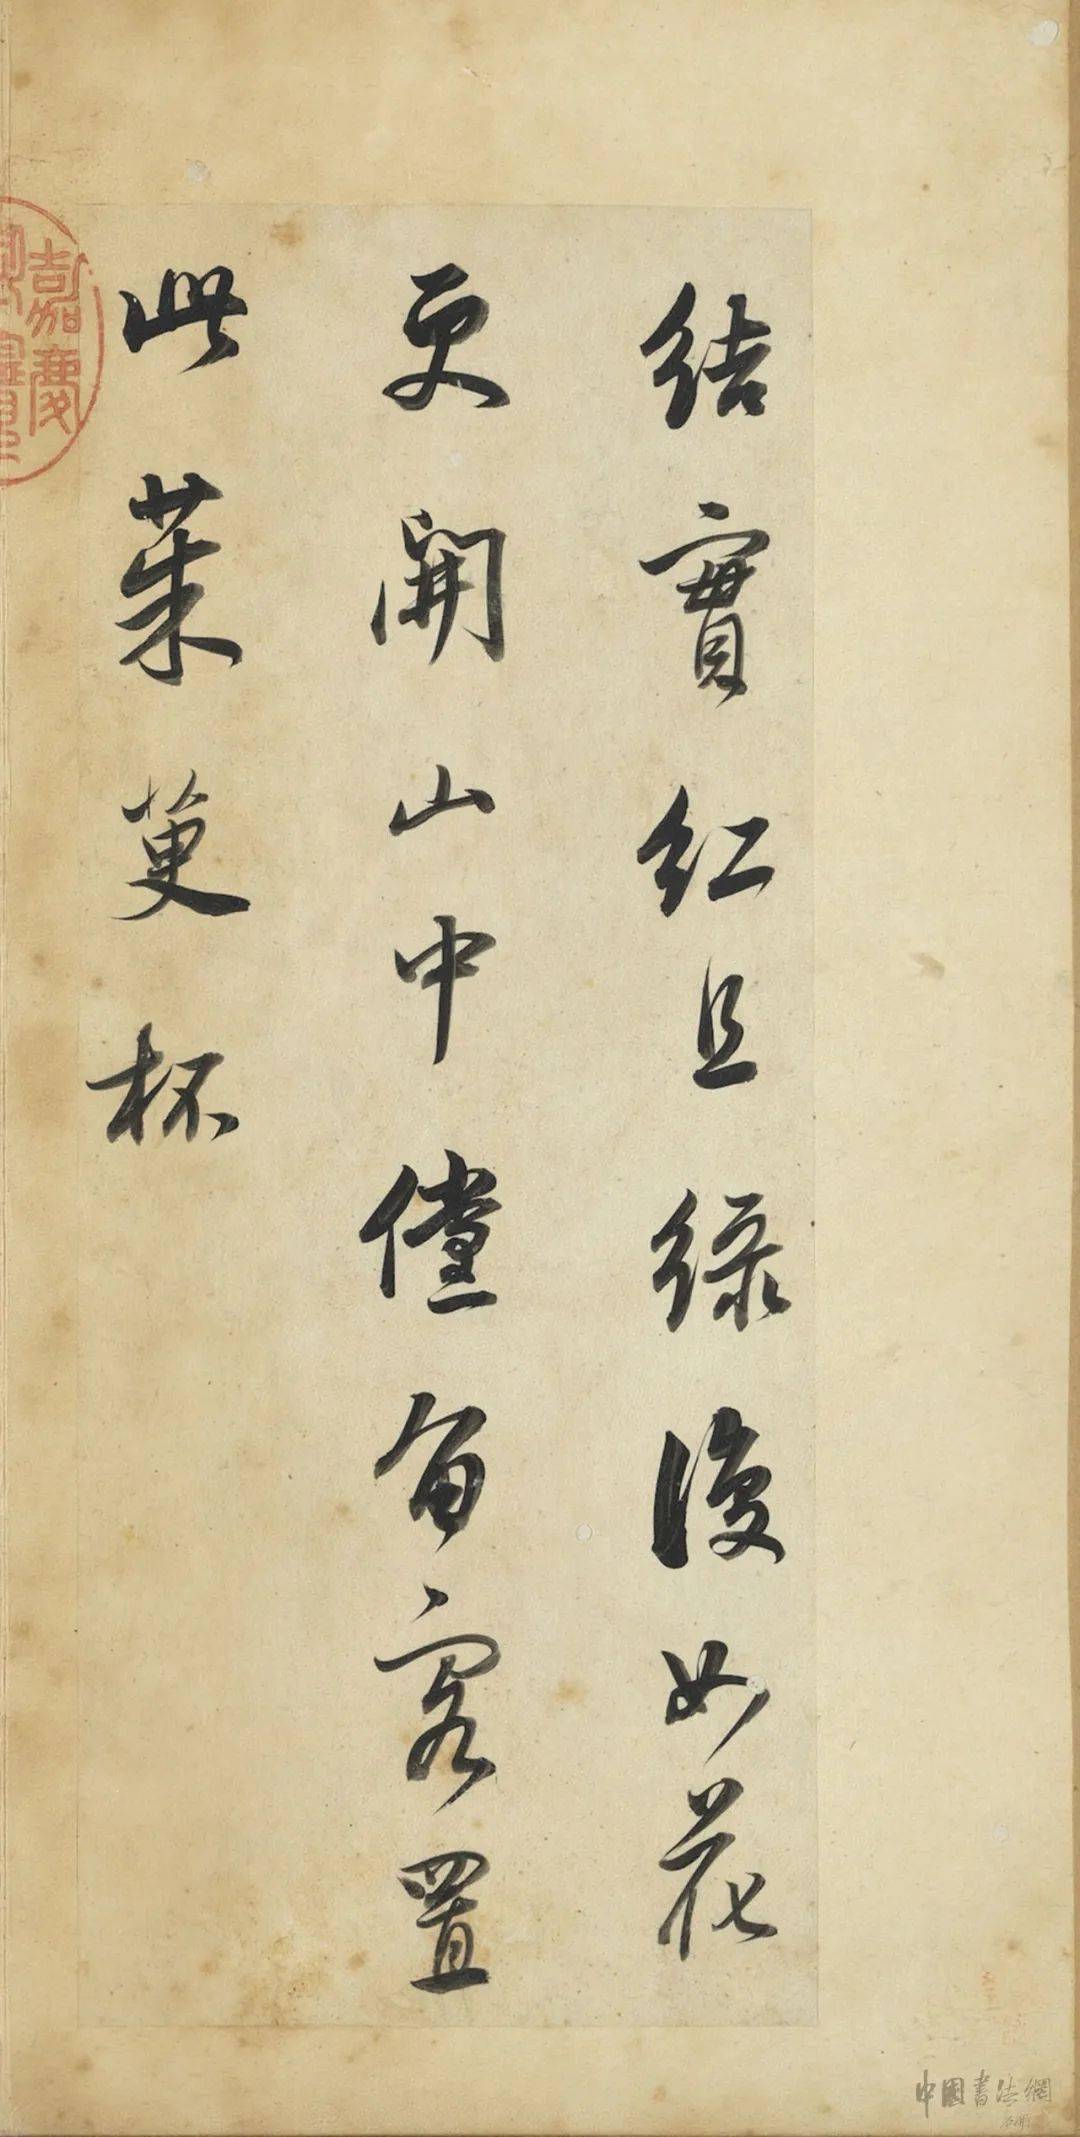 結實紅且綠復如花
更開山中儻留客置
此茱萸杯
嘉慶
中國書法網